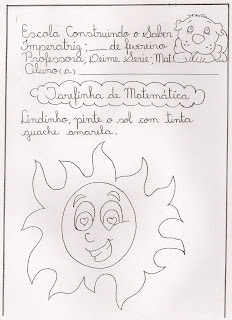 Escola Construindo o Saber
Imperatriz; __ de fevereiro
Professora; Deime Serie; Mat
Aluno(a)
Tarefinha de Matemática
Lindinho, pinte o sol com tinta
guache amarela.